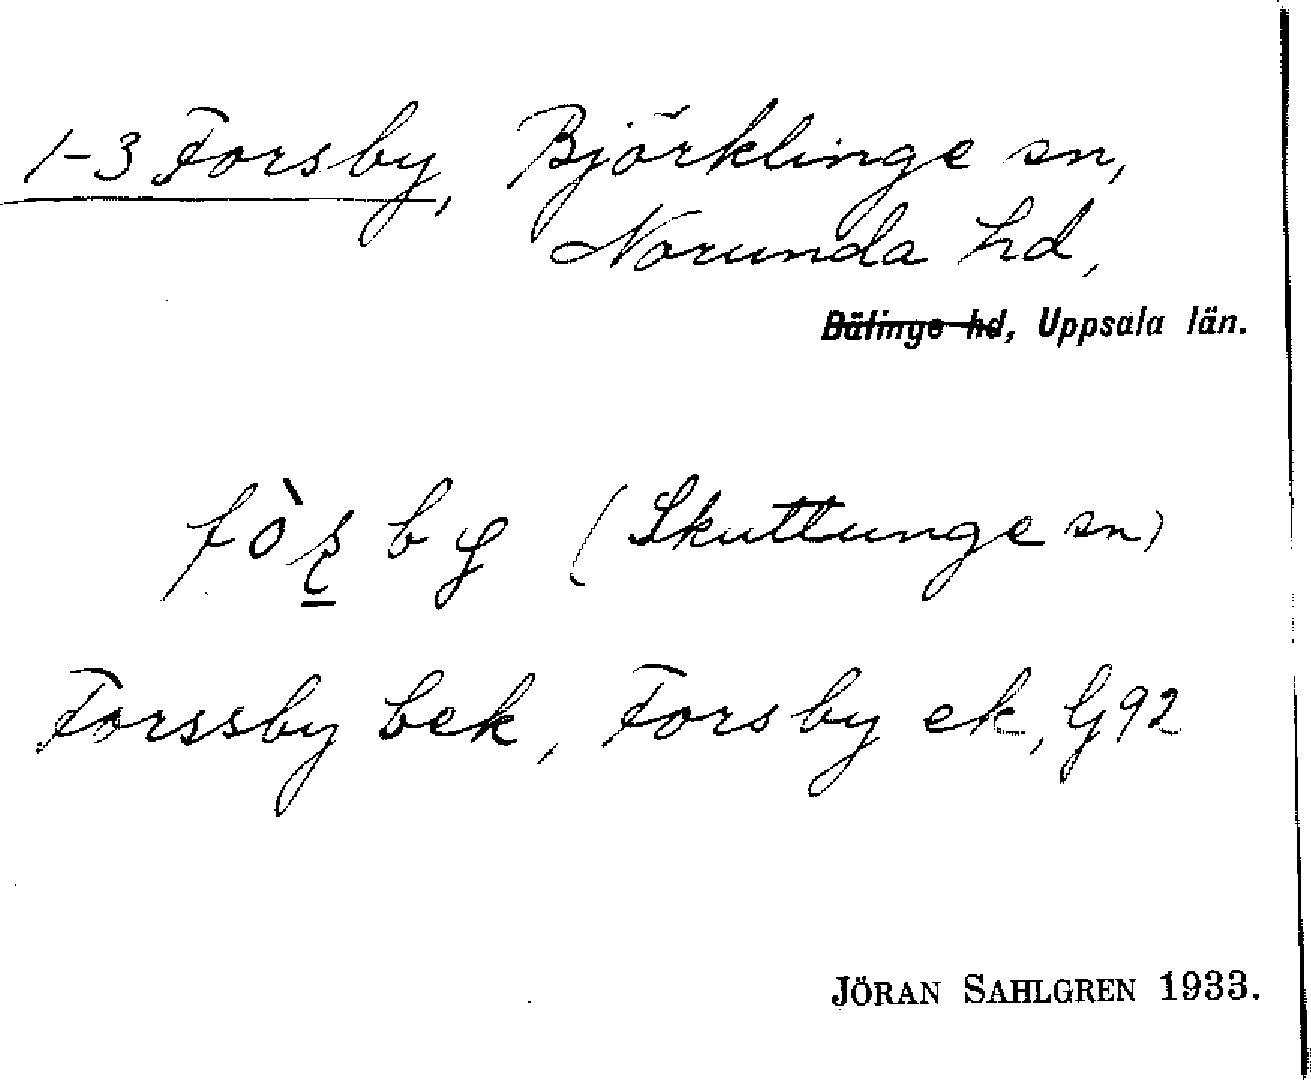 1-3 Forsby, Björklinge sn,
Norunda hd,
Bälinge hd, Uppsala län.
fòʂ by (Skuttunge sn)
Forssby bek, Forsby ek, G92
JÖRAN SAHLGREN 1933.